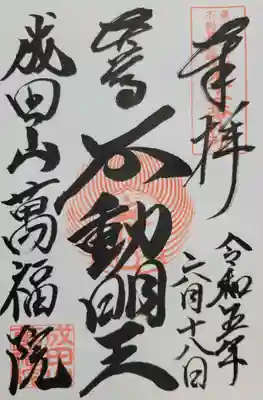 奉拝
令和五年
六月十八日
不動明王
成田山萬福院